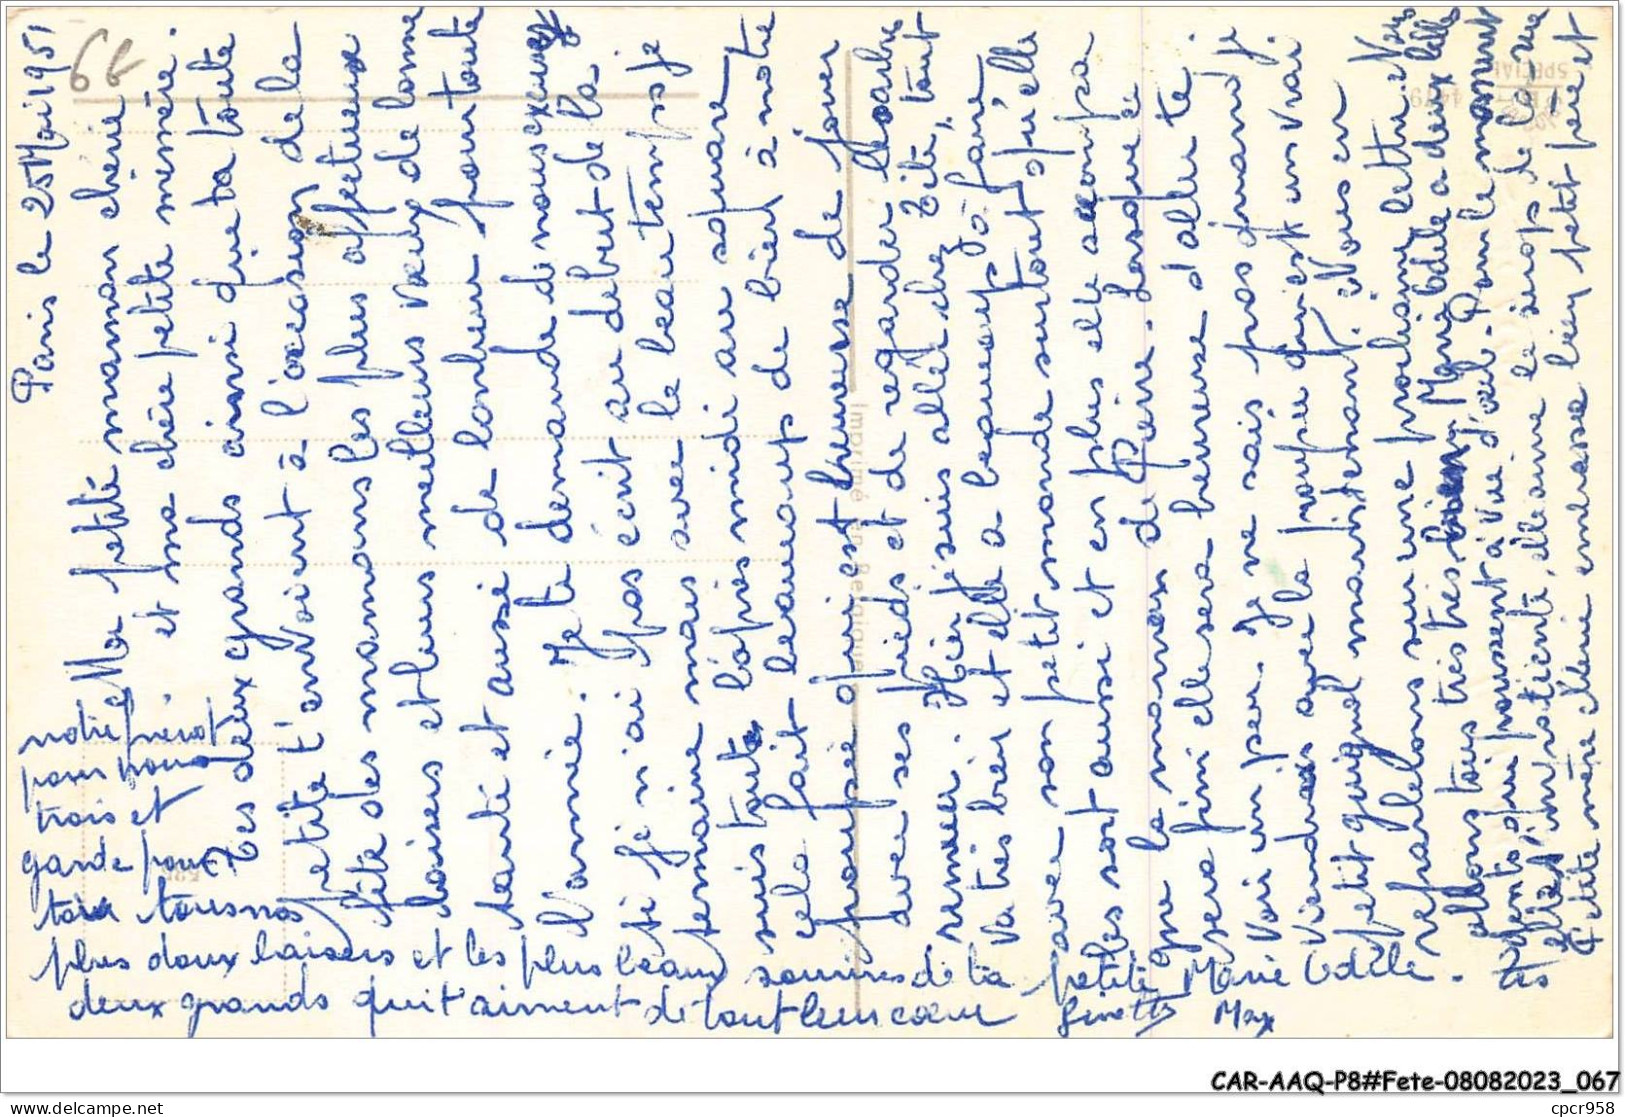 Paris le 25 Mai 1951
Ma petite maman chérie
et ma chère petite mémère.
Tes deux grands ainsi que ta toute
petite t'envoient à l'occasion de la
fête des mamans les plus affectueux
baisers et leurs meilleurs vœux de bonne
santé et aussi de bonheur pour toute
l'année. Je te demande de nous excuser
si je n'ai pas écrit au début de la
semaine mais avec le beau temps je
suis toute l'après midi au square
cela fait beaucoup de bien à notre
poupée qui est heureuse de jouer
avec ses pieds et de regarder les arbres
remuer. Hier je suis allée chez Tété, tout
va très bien et elle a beaucoup à faire
avec son petit monde surtout qu'elle
les sort aussi et en plus elle accompa
gne la maman de Pierre. Lorsque ce
sera fini elle sera heureuse d'aller te
voir un peu. Je ne sais pas quand je
viendrai avec la poupée qui est un vrai
petit guignol maintenant. Nous en
reparlerons sur une prochaine lettre. Nous
allons tous très très bien, Marie Odile a deux belles
dents qui poussent à vue d'œil. Pour le moment
elle s'impatiente, elle aime le sirop de la rue
Petite mère chérie embrasse bien petit père et
notre frérot
pour nous
trois et
garde pour
toi tous nos
plus doux baisers et les plus beaux sourires de ta petite Marie Odile.
tes
deux grands qui t'aiment de tout leur cœur Ginette Max
6€
Imprimé en Belgique
SPECIAL
CAR-AAQ-P8#Fete-08082023_067
delcampe.net
cpcr958